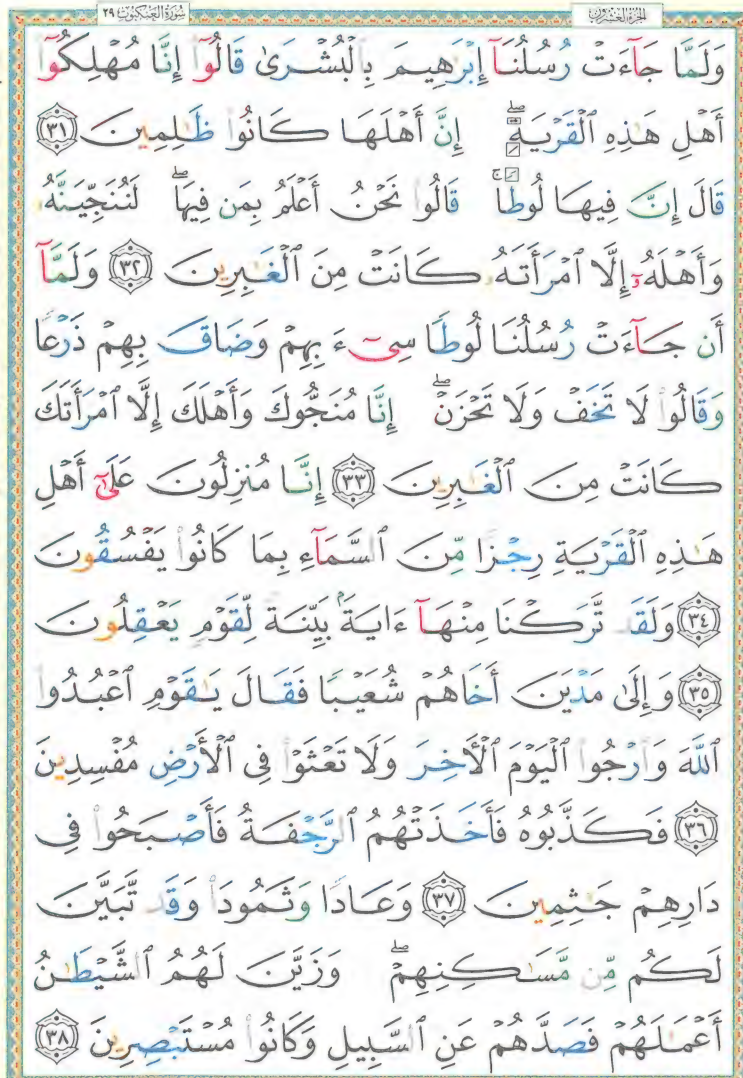 سُورَةُ العَنكَبُوت ٢٩
الجُزءُ العِشرُون
وَلَمَّا جَآءَتْ رُسُلُنَآ إِبْرَٰهِيمَ بِٱلْبُشْرَىٰ قَالُوٓا۟ إِنَّا مُهْلِكُوٓا۟
أَهْلِ هَٰذِهِ ٱلْقَرْيَةِۖ إِنَّ أَهْلَهَا كَانُوا۟ ظَٰلِمِينَ ﴿٣١﴾
قَالَ إِنَّ فِيهَا لُوطًاۚ قَالُوا۟ نَحْنُ أَعْلَمُ بِمَن فِيهَاۖ لَنُنَجِّيَنَّهُۥ
وَأَهْلَهُۥٓ إِلَّا ٱمْرَأَتَهُۥ كَانَتْ مِنَ ٱلْغَٰبِرِينَ ﴿٣٢﴾ وَلَمَّآ
أَن جَآءَتْ رُسُلُنَا لُوطًا سِىٓءَ بِهِمْ وَضَاقَ بِهِمْ ذَرْعًا
وَقَالُوا۟ لَا تَخَفْ وَلَا تَحْزَنْۖ إِنَّا مُنَجُّوكَ وَأَهْلَكَ إِلَّا ٱمْرَأَتَكَ
كَانَتْ مِنَ ٱلْغَٰبِرِينَ ﴿٣٣﴾ إِنَّا مُنزِلُونَ عَلَىٰٓ أَهْلِ
هَٰذِهِ ٱلْقَرْيَةِ رِجْزًا مِّنَ ٱلسَّمَآءِ بِمَا كَانُوا۟ يَفْسُقُونَ
﴿٣٤﴾ وَلَقَد تَّرَكْنَا مِنْهَآ ءَايَةًۢ بَيِّنَةً لِّقَوْمٍ يَعْقِلُونَ
﴿٣٥﴾ وَإِلَىٰ مَدْيَنَ أَخَاهُمْ شُعَيْبًا فَقَالَ يَٰقَوْمِ ٱعْبُدُوا۟
ٱللَّهَ وَٱرْجُوا۟ ٱلْيَوْمَ ٱلْأَخِرَ وَلَا تَعْثَوْا۟ فِى ٱلْأَرْضِ مُفْسِدِينَ
﴿٣٦﴾ فَكَذَّبُوهُ فَأَخَذَتْهُمُ ٱلرَّجْفَةُ فَأَصْبَحُوا۟ فِى
دَارِهِمْ جَٰثِمِينَ ﴿٣٧﴾ وَعَادًا وَثَمُودَا۟ وَقَد تَّبَيَّنَ
لَكُم مِّن مَّسَٰكِنِهِمْۖ وَزَيَّنَ لَهُمُ ٱلشَّيْطَٰنُ
أَعْمَٰلَهُمْ فَصَدَّهُمْ عَنِ ٱلسَّبِيلِ وَكَانُوا۟ مُسْتَبْصِرِينَ ﴿٣٨﴾